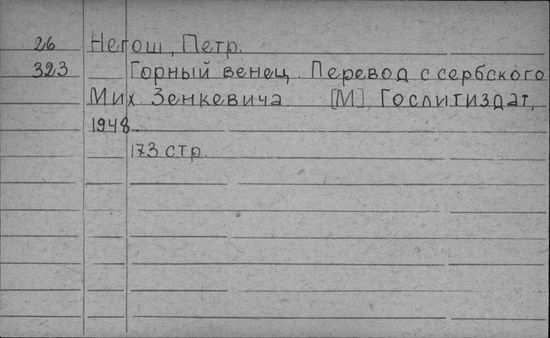 26 Негош, Петр.
323 Горный венец. Перевод с сербского
Мих. Зенкевича [М], Гослитиздат,
1948.
173 стр.